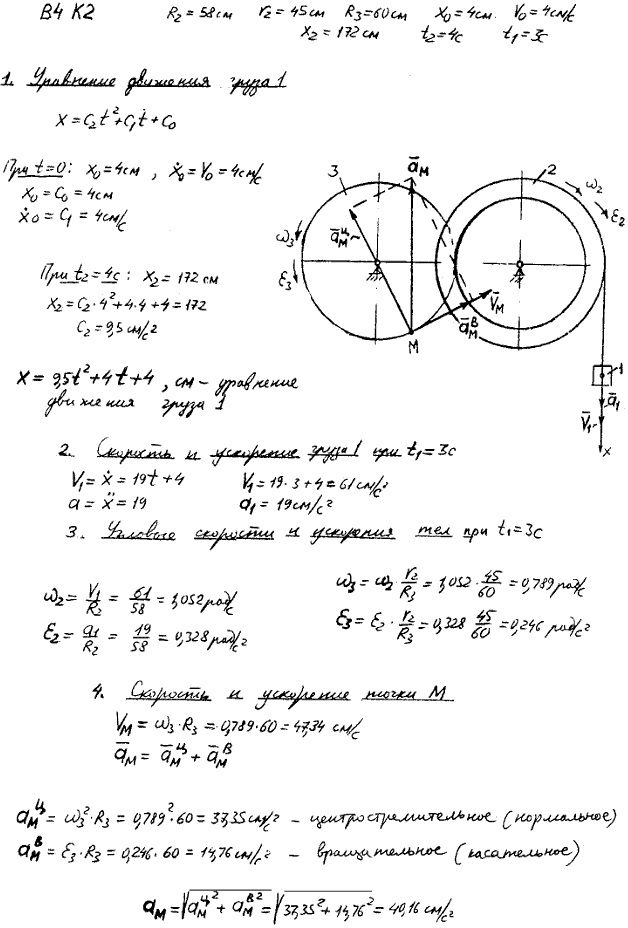 В4 К2 R₂=58см r₂=45см R₃=60см x₀=4см. V₀=4см/с
x₂=172см t₂=4с t₁=3с
1. Уравнение движения груза 1
x=C₂t²+C₁t+C₀
При t=0: x₀=4см, ẋ₀=V₀=4см/с
x₀=C₀=4см
ẋ₀=C₁=4см/с
При t₂=4с: x₂=172см
x₂=C₂·4²+4·4+4=172
C₂=9,5см/с²
x=9,5t²+4t+4, см – уравнение
движения груза 1
3
ā_M
2
ω₂
ε₂
ω₃
ε₃
ā_M^ц
V̄_M
ā_M^в
M
1
ā₁
V̄₁
x
2. Скорость и ускорение груза 1 при t₁=3с
V₁=ẋ=19t+4 V₁=19·3+4=61см/с
a=ẍ=19 a₁=19см/с²
3. Угловые скорости и ускорения тел при t₁=3с
ω₂=V₁/R₂=61/58=1,052рад/с ω₃=ω₂·r₂/R₃=1,052·45/60=0,789рад/с
ε₂=a₁/R₂=19/58=0,328рад/с² ε₃=ε₂·r₂/R₃=0,328 45/60=0,246рад/с²
4. Скорость и ускорение точки М
V_M=ω₃·R₃=0,789·60=47,34 см/с
ā_M=ā_M^ц+ā_M^в
a_M^ц=ω₃²·R₃=0,789²·60=37,35см/с² – центростремительное (нормальное)
a_M^в=ε₃·R₃=0,246·60=14,76см/с² – вращительное (касательное)
a_M=√(a_M^ц²+a_M^в²)=√(37,35²+14,76²)=40,16см/с²